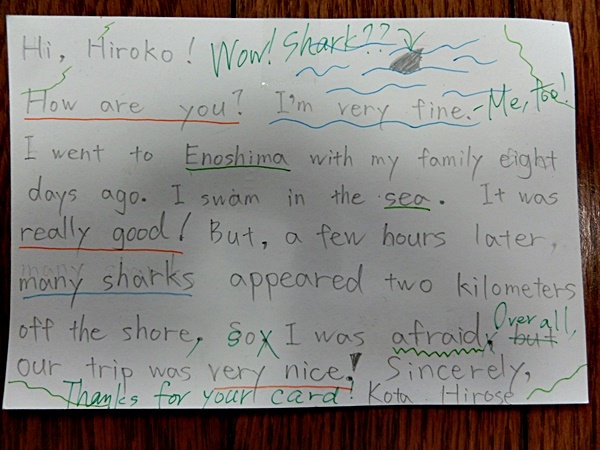 Hi, Hiroko! Wow! Shark??
How are you? I'm very fine. - Me, too!
I went to Enoshima with my family eight
days ago. I swam in the sea. It was
really good! But, a few hours later,
many sharks appeared two kilometers
off the shore, so I was afraid, but Over all,
our trip was very nice! Sincerely,
Thanks for your card! Kota Hirose